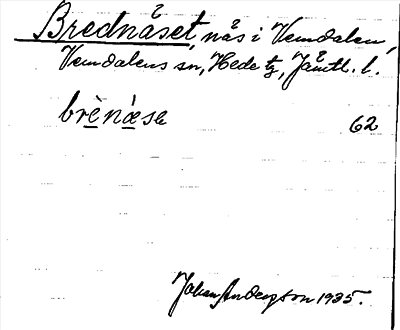 Brednåset, nås i Vemdalen,
Vemdalens sn, Hede tg, Jämtl. l.
brènǽse 62
Johan Anderzson 1935.